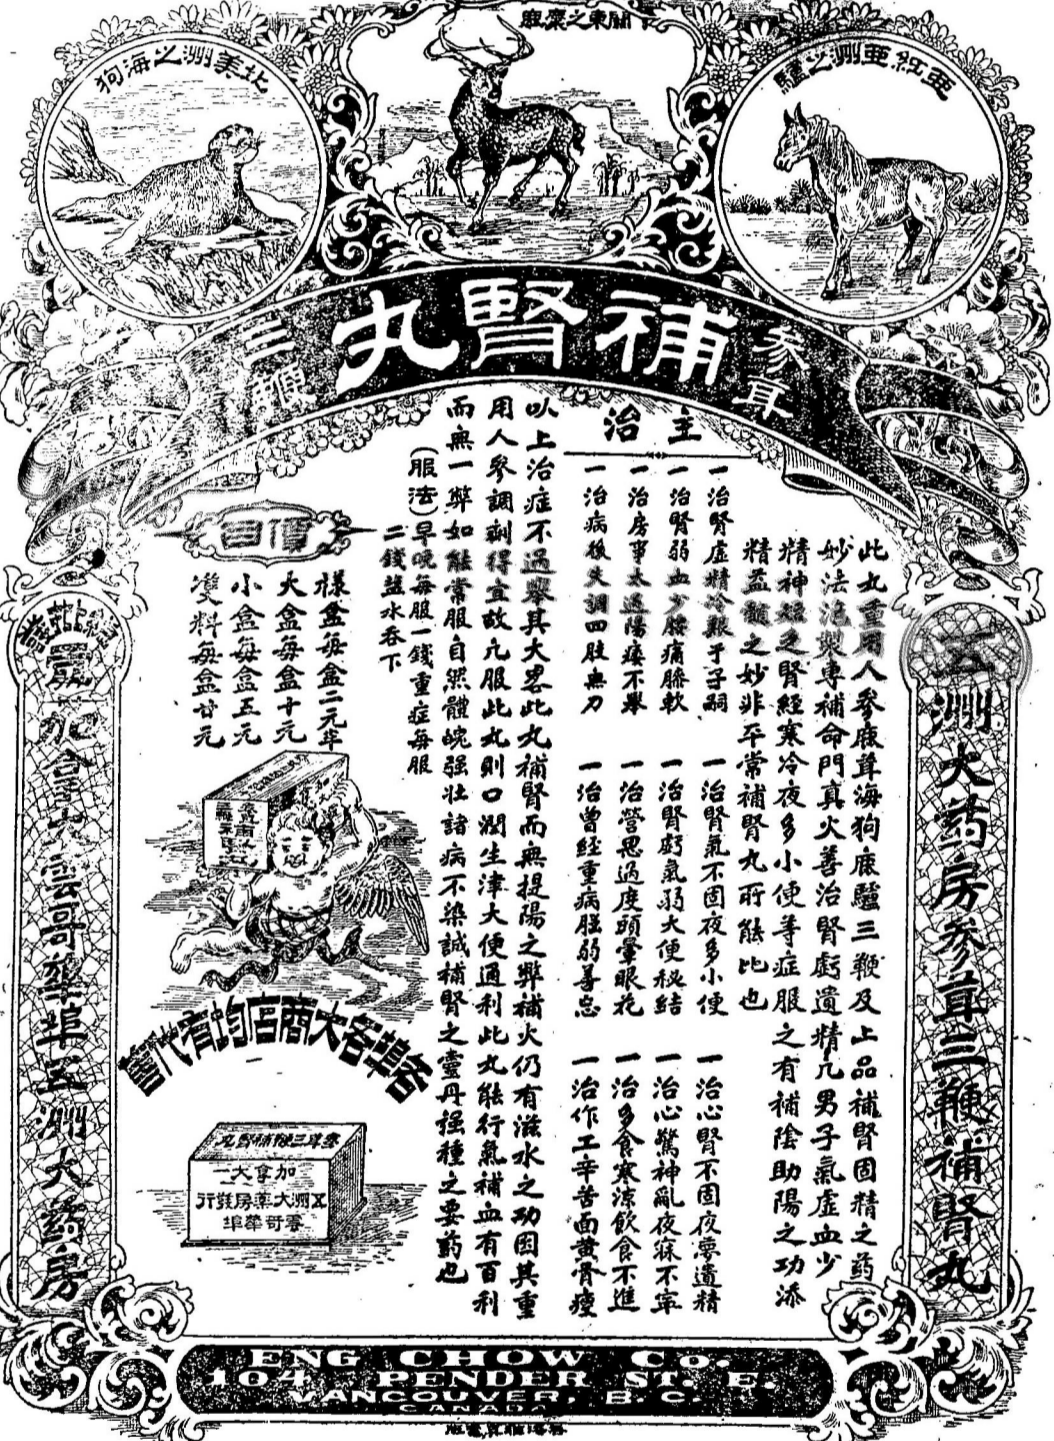 亞紅亞洲之驢
關東之麋鹿
北美洲之海狗
參茸
補腎丸
三鞭
五洲大药房參茸三鞭補腎丸
此丸重用人參鹿茸海狗鹿驢三鞭及上品補腎固精之药
妙法泡製專補命門真火善治腎虧遺精凡男子氣虛血少
精神短乏腎經寒冷夜多小便等症服之有補陰助陽之功添
精益髓之妙非平常補腎丸所能比也
主治
一治腎虛精冷艱于子嗣
一治腎氣不固夜多小便
一治心腎不固夜夢遺精
一治腎弱血少腰痛膝軟
一治腎虧氣弱大便秘結
一治心驚神亂夜寐不寧
一治房事太過陽痿不舉
一治營思過度頭暈眼花
一治多食寒涼飲食不進
一治病後失調四肢無力
一治曾經重病胵弱善忘
一治作工辛苦面黄骨瘦
以上治症不過舉其大畧此丸補腎而無提陽之弊補火仍有滋水之功因其重
用人參調劑得宜故凡服此丸則口潤生津大便通利此丸能行氣補血有百利
而無一弊如能常服自然體魄强壮諸病不染誠補腎之靈丹强種之要药也
(服法)早晚每服一錢重症每服
二錢盐水吞下
價目
樣盒每盒二元半
大盒每盒十元
小盒每盒五元
雙料每盒廿元
各埠各大商店均有代售
參茸三鞭補腎丸
加拿大一
五洲大藥房發行
雲哥華埠
加拿大雲哥華埠五洲大药房
ENG CHOW Co.
104 PENDER ST. E.
VANCOUVER, B. C.
CANADA